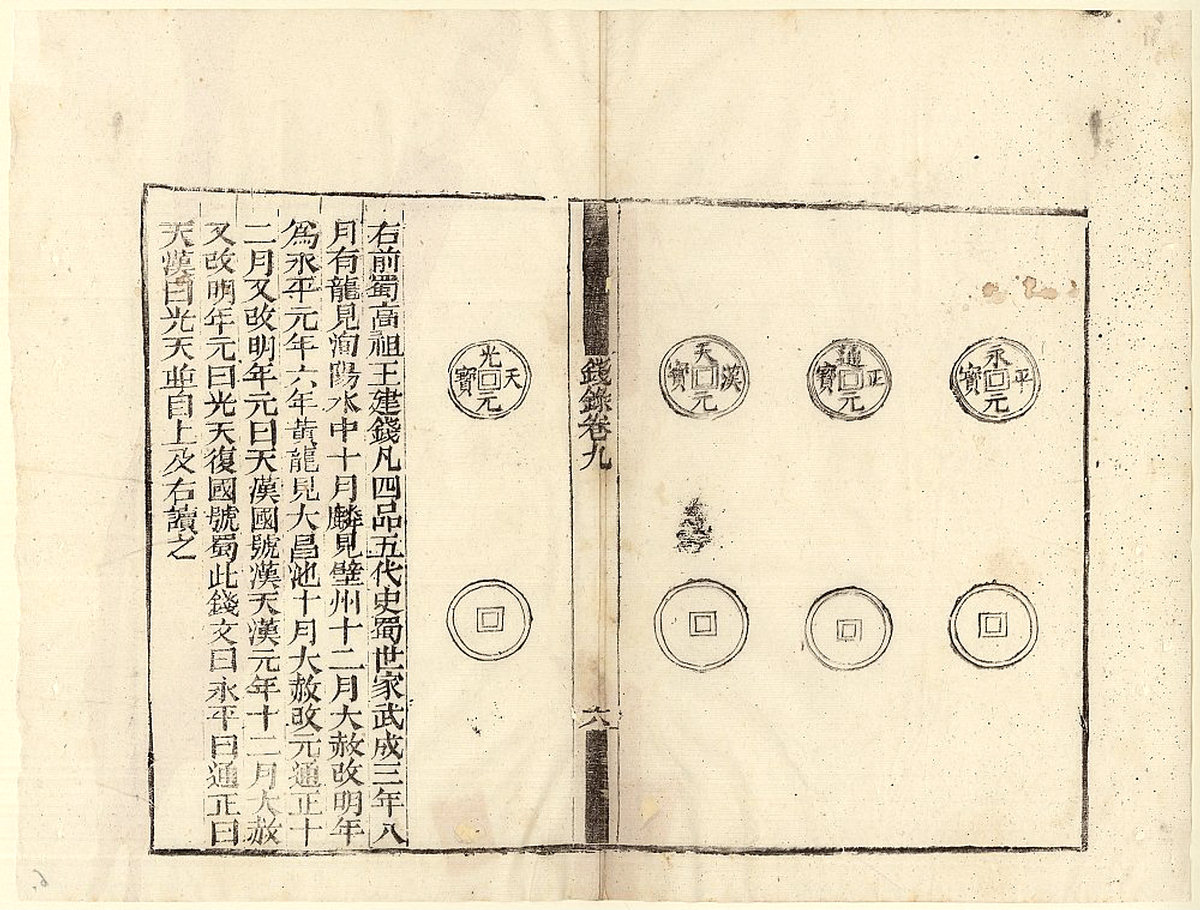 永平元寶
通正元寶
天漢元寶
錢錄卷九
六
光天元寶
右前蜀高祖王建錢凡四品五代史蜀世家武成三年八
月有龍見洵陽水中十月麟見壁州十二月大赦改明年
爲永平元年六年黃龍見大昌池十月大赦改元通正十
二月又改明年元曰天漢國號漢天漢元年十二月大赦
又改明年元曰光天復國號蜀此錢文曰永平曰通正曰
天漢曰光天並自上及右讀之